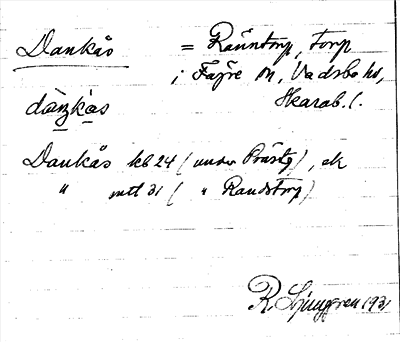 Dankås = Råntorp, torp
i Fägre sn, Vadsbo hd,
dàŋkas Skarab. l.
Dankås kb 24 (under Prästg), ek
" mtl 31 ( " Randstorp)
R. Ljunggren 1931